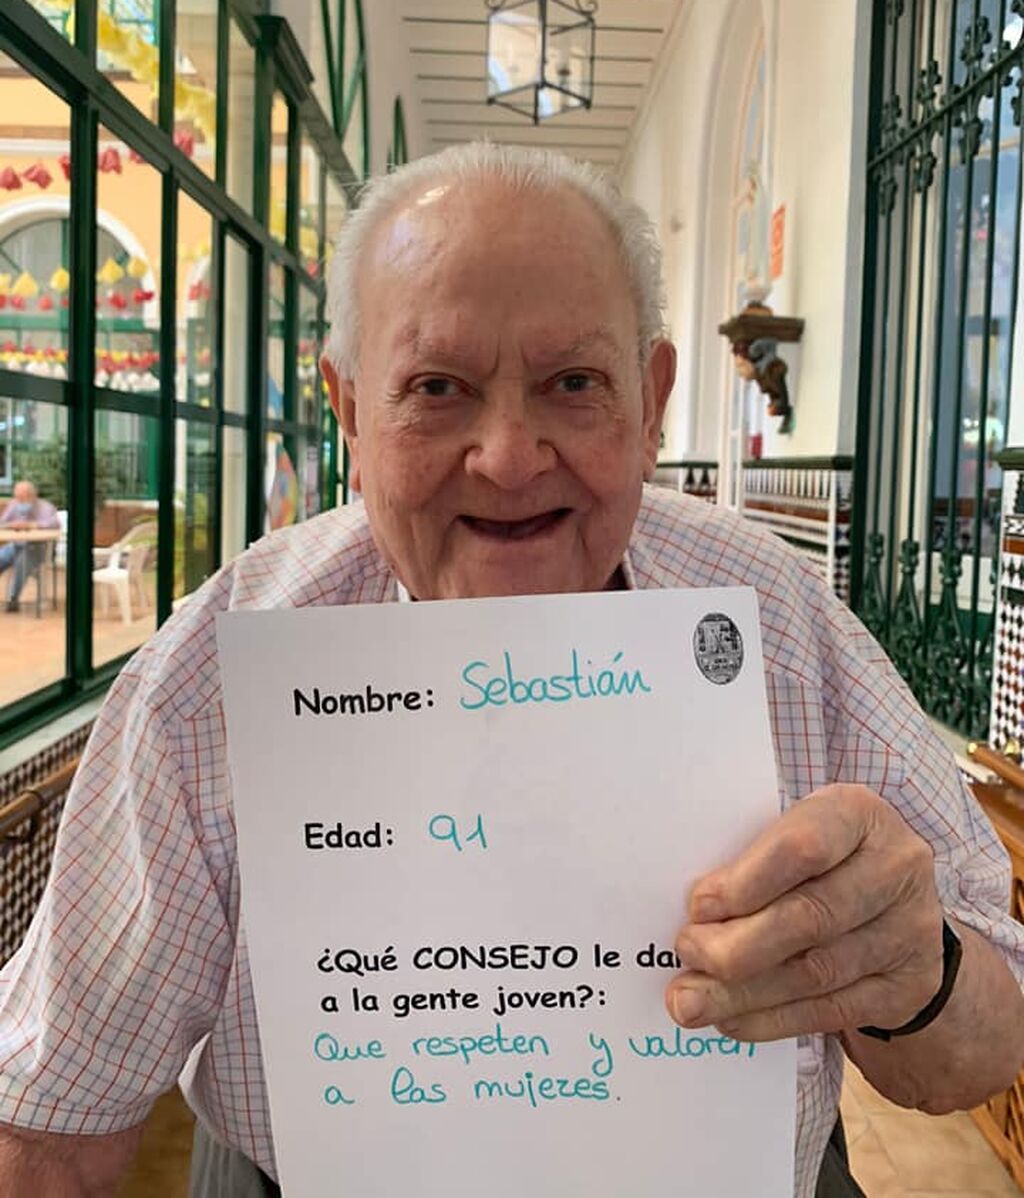 Nombre: Sebastián
Edad: 91
¿Qué CONSEJO le
a la gente joven?:
Que respeten y valoren
a las mujeres.